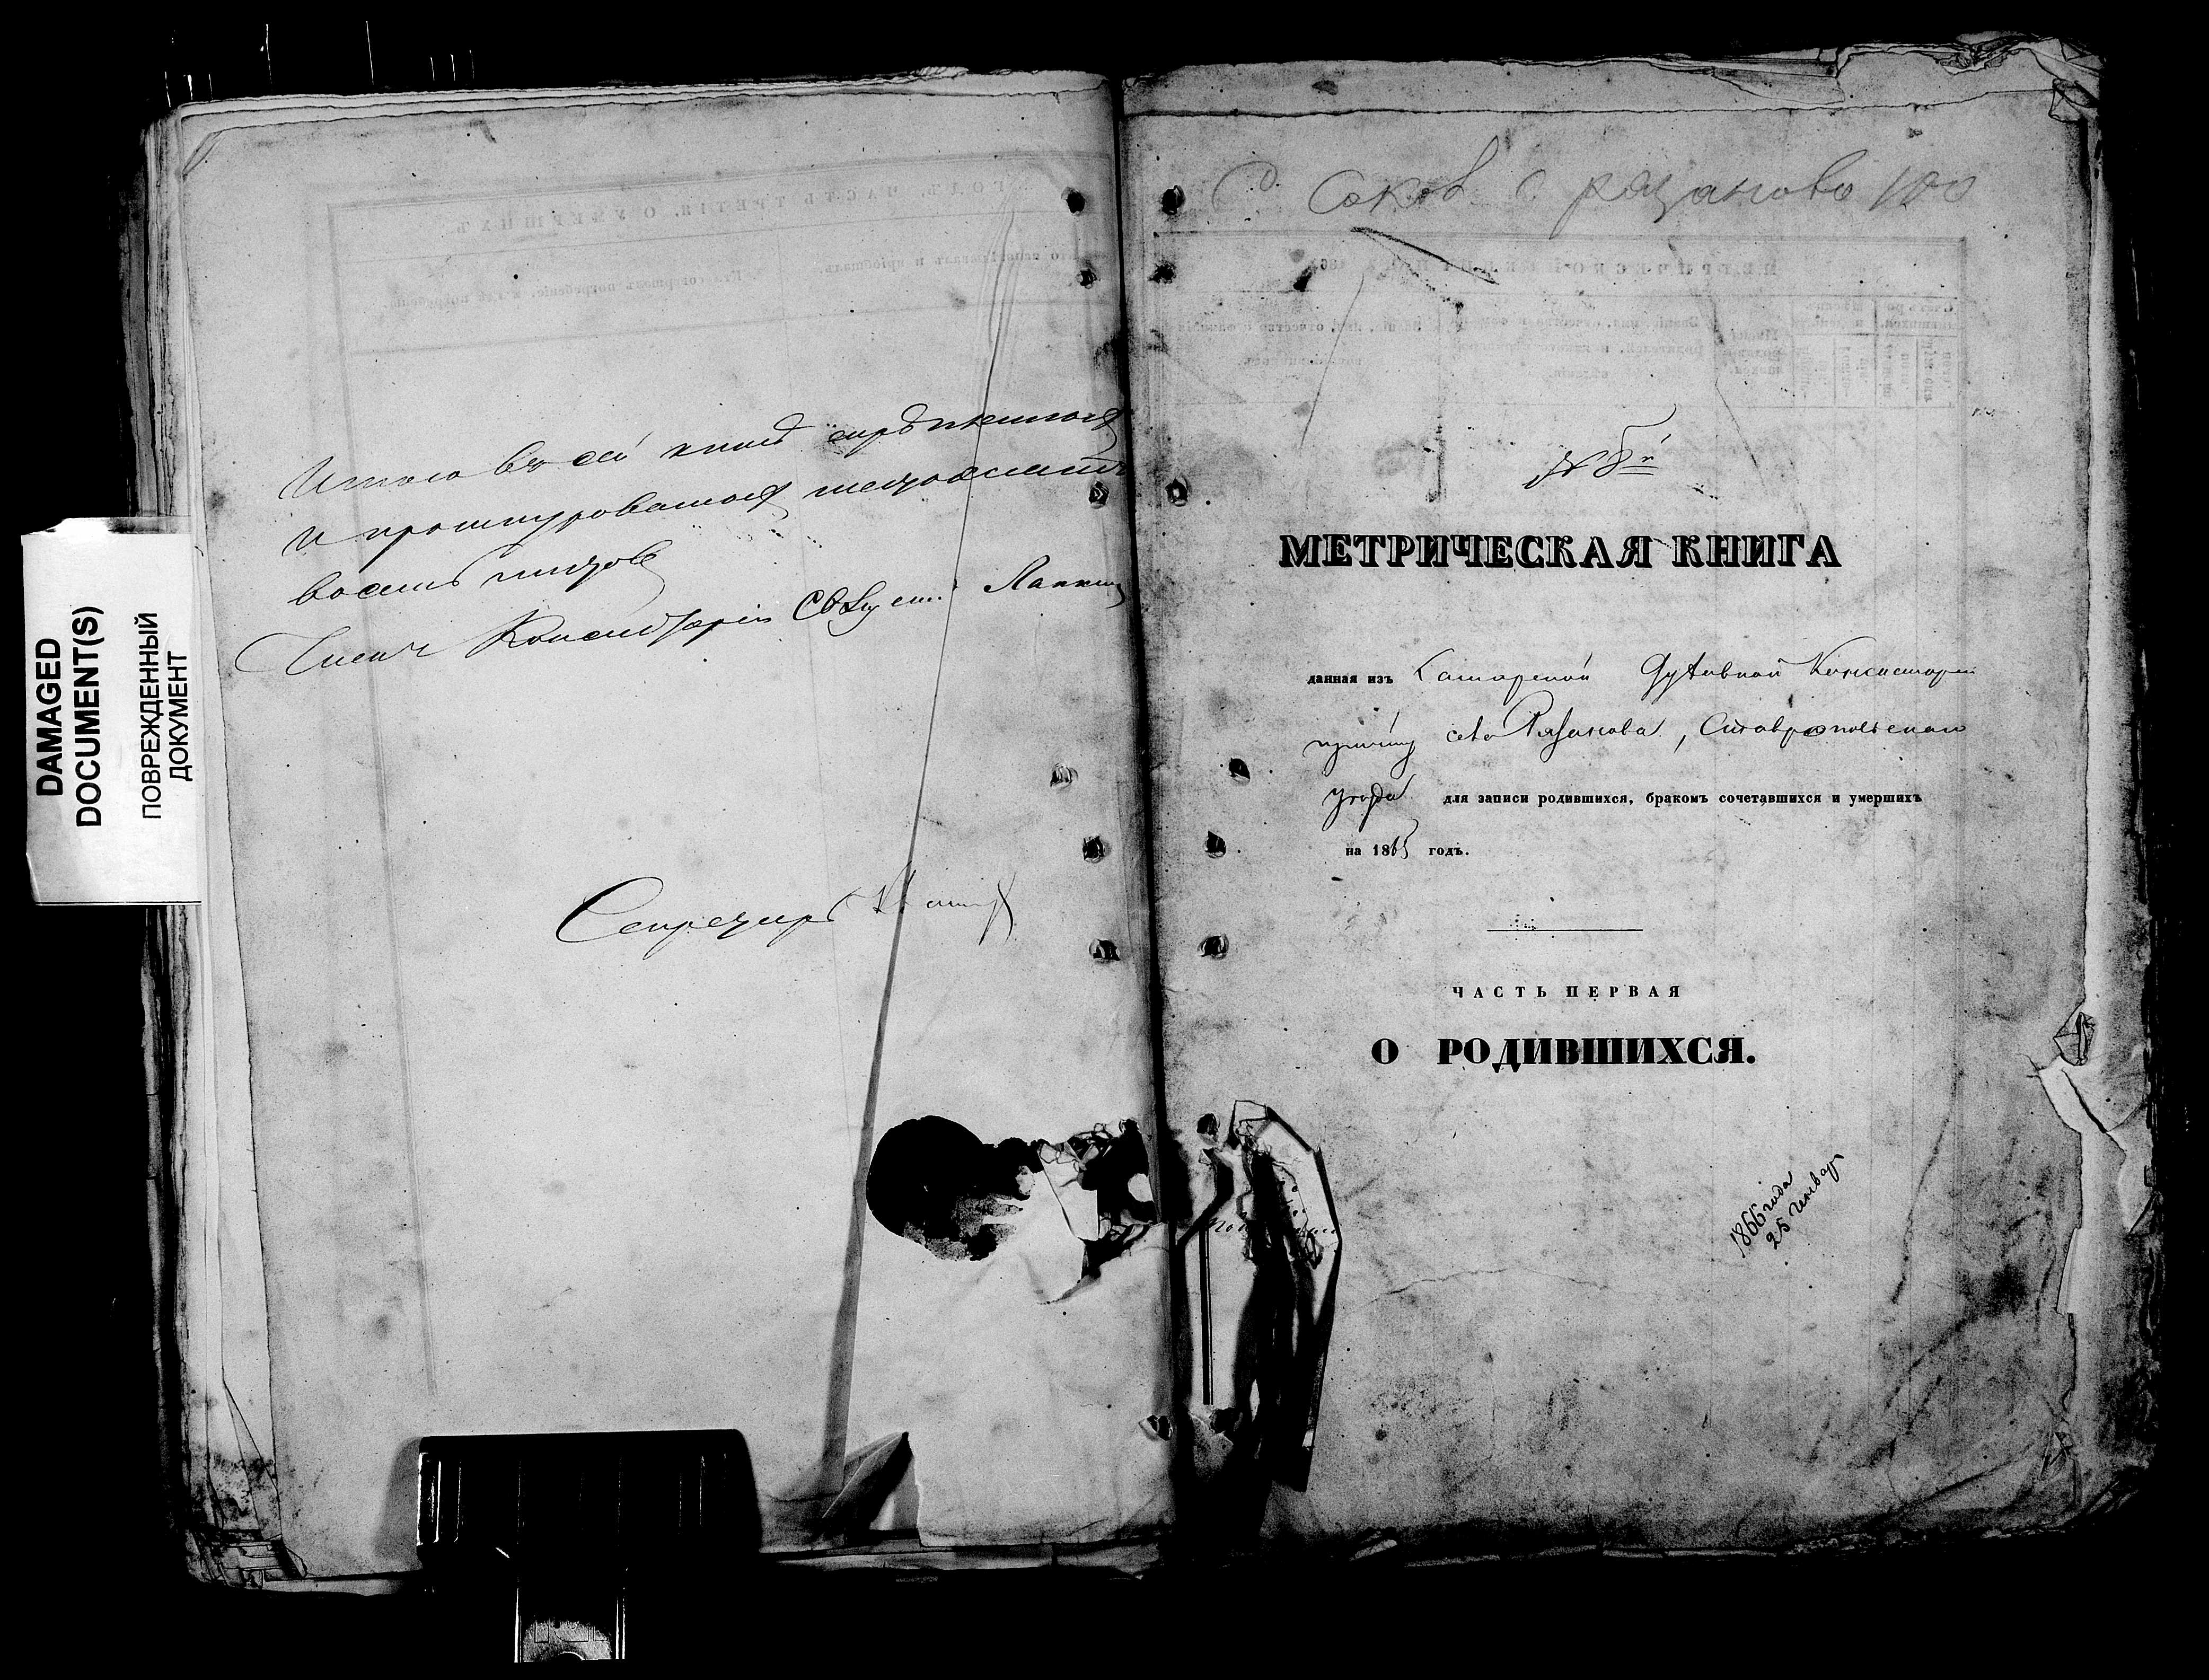 DAMAGED
DOCUMENT(S)
ПОВРЕЖДЕННЫЙ
ДОКУМЕНТ
Итого въ сей книгѣ скрѣпленной
и прошнурованной шездесятъ
восемь листовъ
Членъ Консисторіи Свящ
Секретарь
с рязаново 100
МЕТРИЧЕСКАЯ КНИГА
данная изъ Самарской Духовной Консисторіи
причту села Рязанова, Ставропольскаго
уѣзда для записи родившихся, бракомъ сочетавшихся и умершихъ
на 1865 годъ.
ЧАСТЬ ПЕРВАЯ
О РОДИВШИХСЯ.
1866 года
25 Генваря